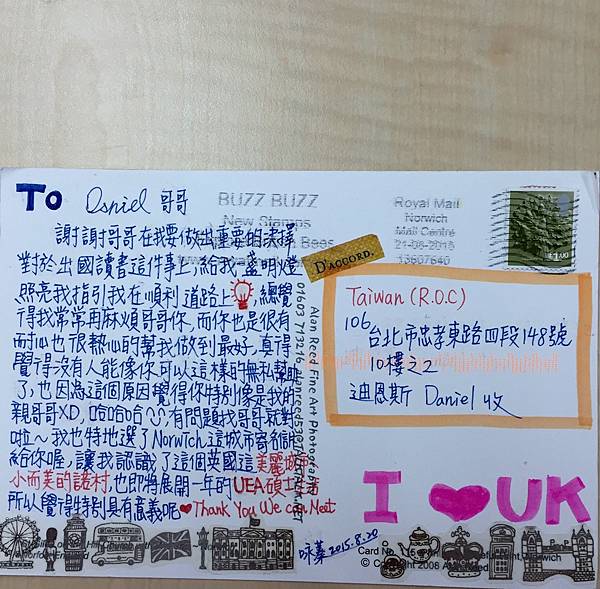 To Daniel 哥哥
謝謝哥哥在我要做出重要的決擇
對於出國讀書這件事上，給我一盞明燈
照亮我指引我在順利道路上，總覺
得我常常再麻煩哥哥你，而你也是很有
耐心也很熱心的幫我做到最好，真得
覺得沒有人能像你可以這樣的無私幫助
了，也因為這個原因覺得你特別像是我的
親哥哥XD，哈哈哈，有問題找哥哥就對
啦～我也特地選了Norwich這城市寄
給你喔，讓我認識了這個英國這美麗城市
小而美的諾村，也即將展開一年的UEA碩士
所以覺得特別具有意義呢❤Thank You We can Meet
詠蓁 2015.8.20
BUZZ BUZZ
New Stamps
Bees
Royal Mail
Norwich
Mail Centre
21-08-2015
13607640
£1.00
D'ACCORD.
Taiwan (R.O.C)
106
台北市忠孝東路四段148號
10樓之2
迪恩斯 Daniel 收
I ❤ UK
Alan Reed Fine Art Photogra
01603 713216
Card No.
© Copyright 2008 Alan Reed